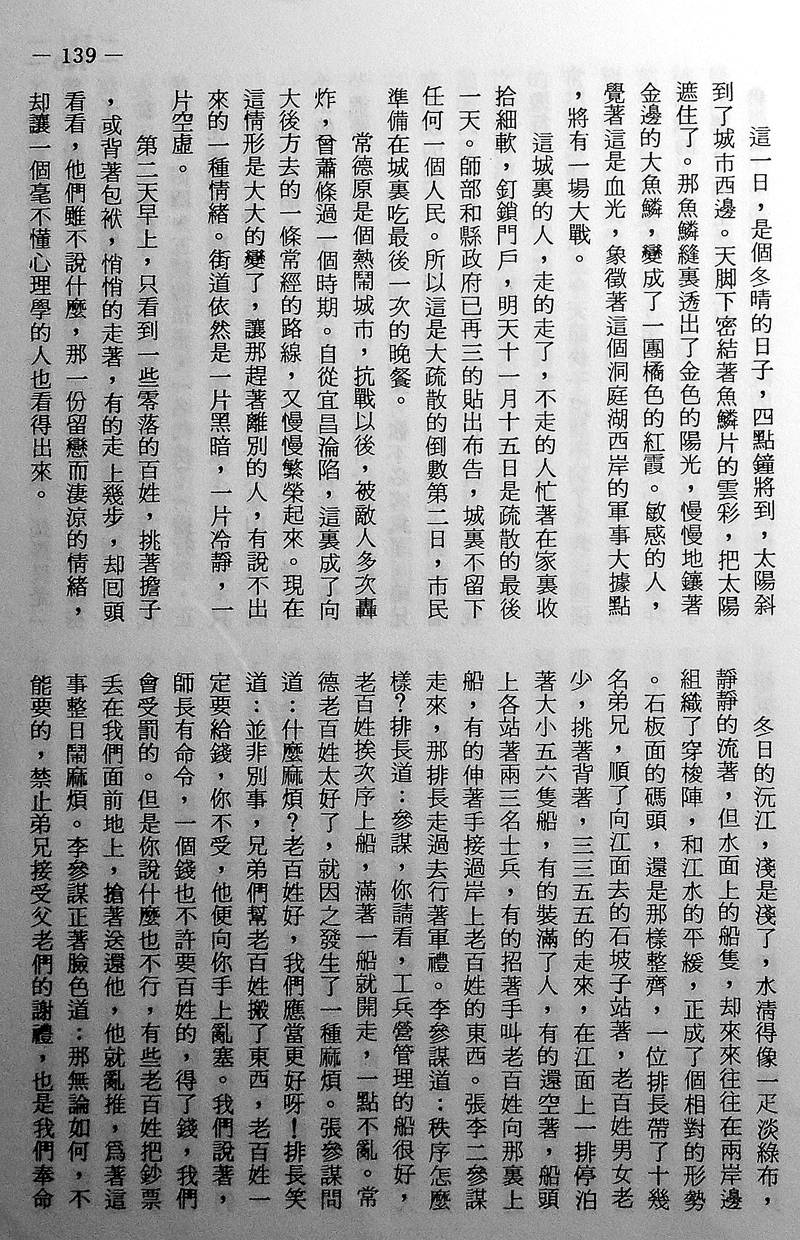 — 139 —
這一日，是個冬晴的日子，四點鐘將到，太陽斜
到了城市西邊。天脚下密結著魚鱗片的雲彩，把太陽
遮住了。那魚鱗縫裏透出了金色的陽光，慢慢地鑲著
金邊的大魚鱗，變成了一團橘色的紅霞。敏感的人，
覺著這是血光，象徵著這個洞庭湖西岸的軍事大據點
，將有一場大戰。
這城裏的人，走的走了，不走的人忙著在家裏收
拾細軟，釘鎖門戶，明天十一月十五日是疏散的最後
一天。師部和縣政府已再三的貼出布告，城裏不留下
任何一個人民。所以這是大疏散的倒數第二日，市民
準備在城裏吃最後一次的晚餐。
常德原是個熱鬧城市，抗戰以後，被敵人多次轟
炸，曾蕭條過一個時期。自從宜昌淪陷，這裏成了向
大後方去的一條常經的路線，又慢慢繁榮起來。現在
這情形是大大的變了，讓那趕著離別的人，有說不出
來的一種情緒。街道依然是一片黑暗，一片冷靜，一
片空虛。
第二天早上，只看到一些零落的百姓，挑著擔子
，或背著包袱，悄悄的走著，有的走上幾步，却囘頭
看看，他們雖不說什麼，那一份留戀而淒涼的情緒，
却讓一個毫不懂心理學的人也看得出來。
冬日的沅江，淺是淺了，水清得像一疋淡綠布，
靜靜的流著，但水面上的船隻，却來來往往在兩岸邊
組織了穿梭陣，和江水的平緩，正成了個相對的形勢
。石板面的碼頭，還是那樣整齊，一位排長帶了十幾
名弟兄，順了向江面去的石坡子站著，老百姓男女老
少，挑著背著，三三五五的走來，在江面上一排停泊
著大小五六隻船，有的裝滿了人，有的還空著，船頭
上各站著兩三名士兵，有的招著手叫老百姓向那裏上
船，有的伸著手接過岸上老百姓的東西。張李二參謀
走來，那排長走過去行著軍禮。李參謀道：秩序怎麼
樣？排長道：參謀，你請看，工兵營管理的船很好，
老百姓挨次序上船，滿著一船就開走，一點不亂。常
德老百姓太好了，就因之發生了一種麻煩。張參謀問
道：什麼麻煩？老百姓好，我們應當更好呀！排長笑
道：並非別事，兄弟們幫老百姓搬了東西，老百姓一
定要給錢，你不受，他便向你手上亂塞。我們說著，
師長有命令，一個錢也不許要百姓的，得了錢，我們
會受罰的。但是你說什麼也不行，有些老百姓把鈔票
丢在我們面前地上，搶著送還他，他就亂推，爲著這
事整日鬧麻煩。李參謀正著臉色道：那無論如何，不
能要的，禁止弟兄接受父老們的謝禮，也是我們奉命